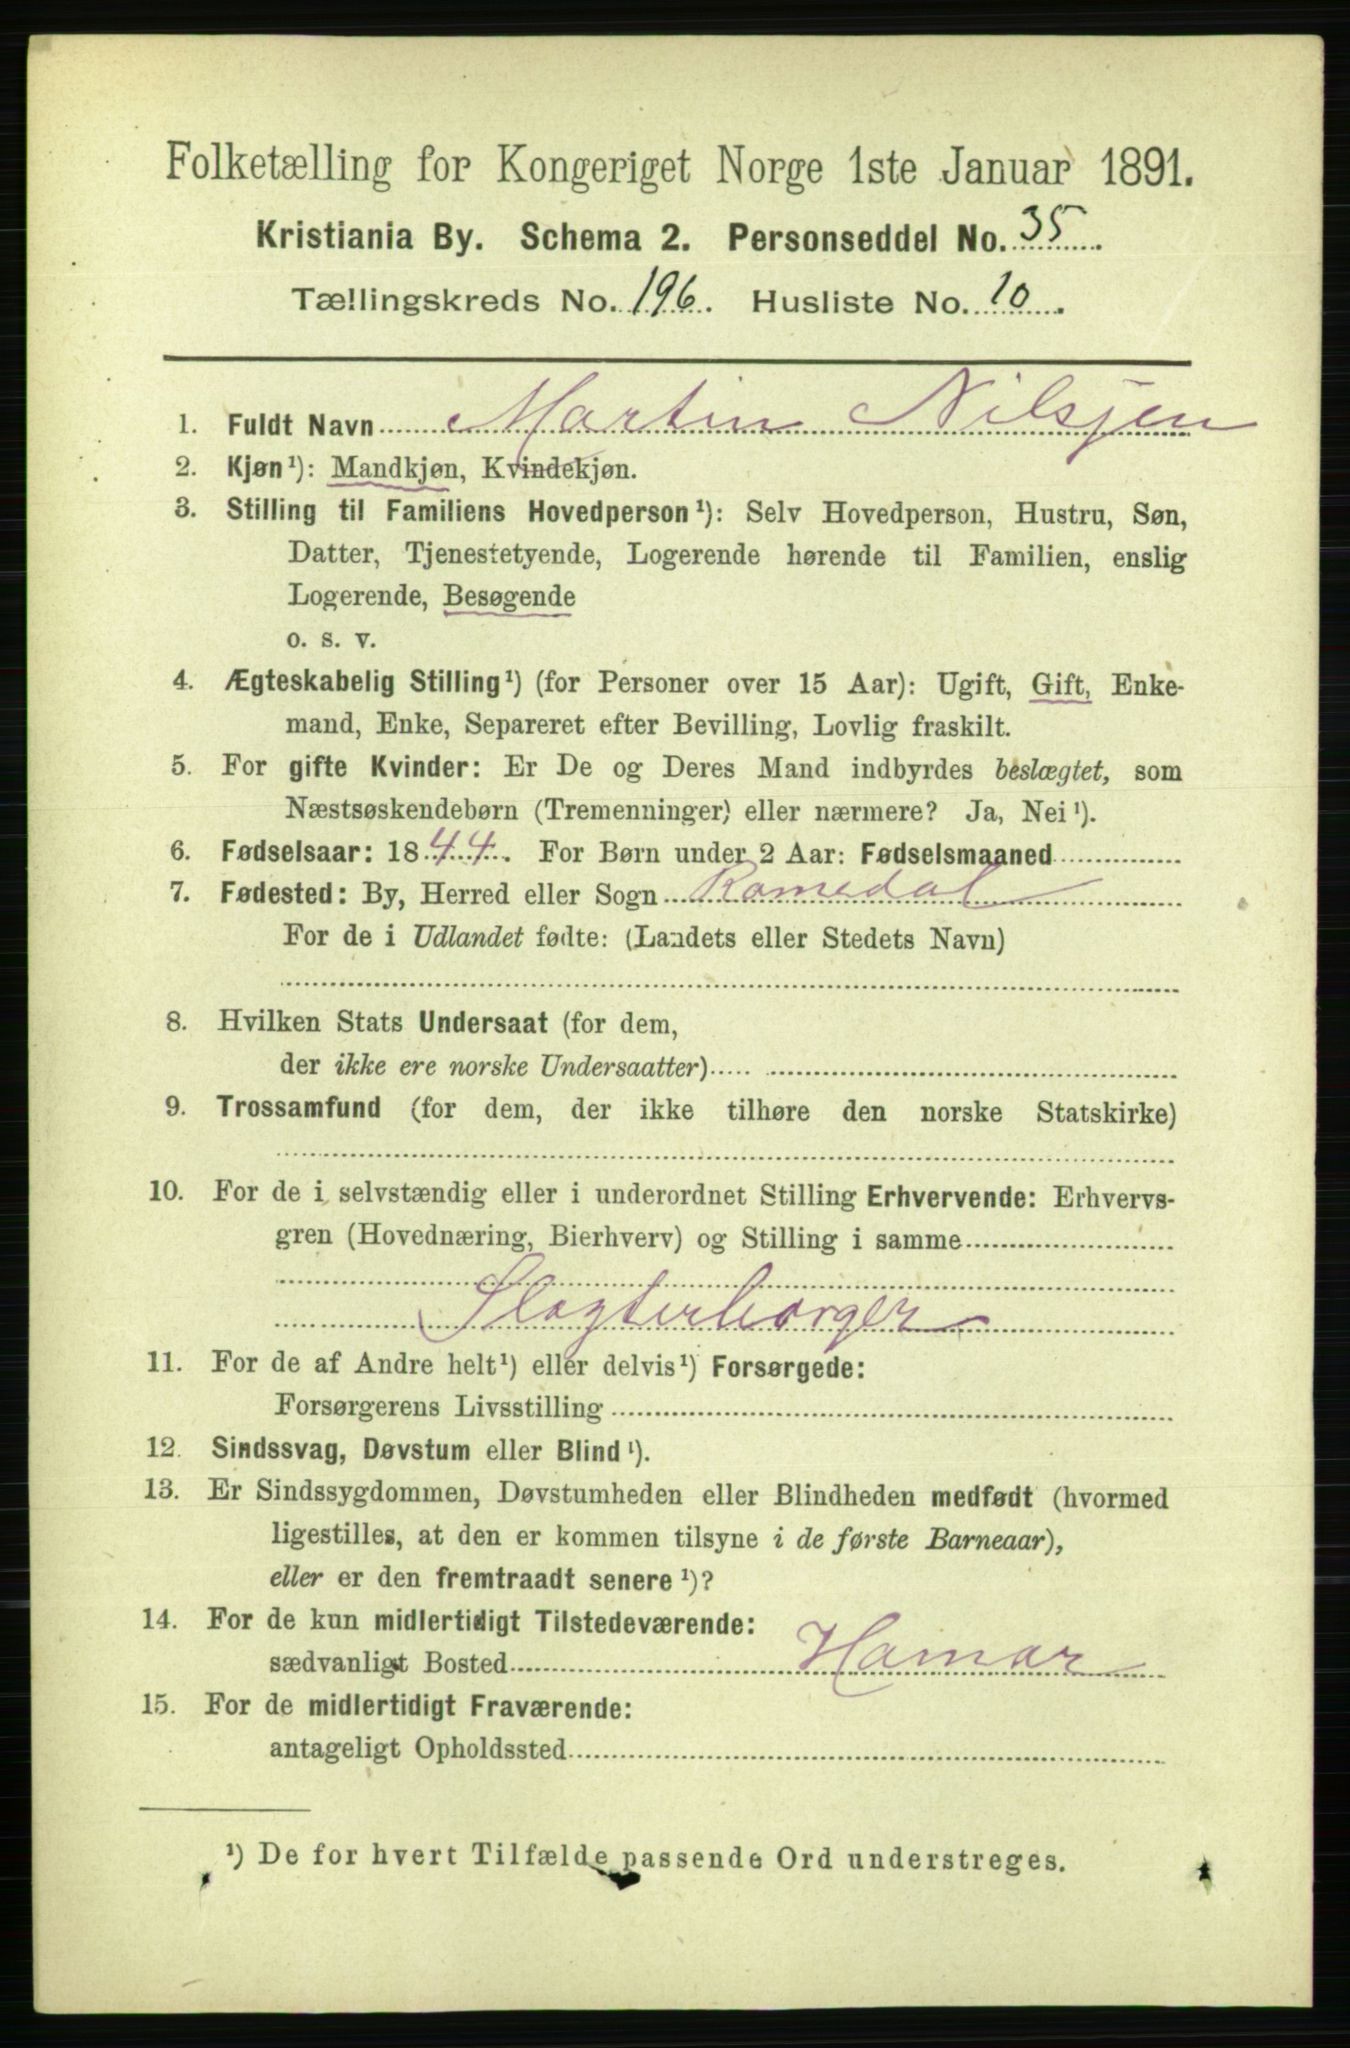 Folketælling for Kongeriget Norge 1ste Januar 1891.
Kristiania By. Schema 2. Personseddel No. 35.
Tællingskreds No. 196. Husliste No. 10.
1. Fuldt Navn Martin Nilsjen
2. Kjøn¹): Mandkjøn, Kvindekjøn.
3. Stilling til Familiens Hovedperson¹): Selv Hovedperson, Hustru, Søn,
Datter, Tjenestetyende, Logerende hørende til Familien, enslig
Logerende, Besøgende
o. s. v.
4. Ægteskabelig Stilling¹) (for Personer over 15 Aar): Ugift, Gift, Enke-
mand, Enke, Separeret efter Bevilling, Lovlig fraskilt.
5. For gifte Kvinder: Er De og Deres Mand indbyrdes beslægtet, som
Næstsøskendebørn (Tremenninger) eller nærmere? Ja, Nei¹).
6. Fødselsaar: 1844. For Børn under 2 Aar: Fødselsmaaned
7. Fødested: By, Herred eller Sogn Romedal
For de i Udlandet fødte: (Landets eller Stedets Navn)
8. Hvilken Stats Undersaat (for dem,
der ikke ere norske Undersaatter)
9. Trossamfund (for dem, der ikke tilhøre den norske Statskirke)
10. For de i selvstændig eller i underordnet Stilling Erhvervende: Erhvervs-
gren (Hovednæring, Bierhverv) og Stilling i samme
Slagterborger
11. For de af Andre helt¹) eller delvis¹) Forsørgede:
Forsørgerens Livsstilling
12. Sindssvag, Døvstum eller Blind¹).
13. Er Sindssygdommen, Døvstumheden eller Blindheden medfødt (hvormed
ligestilles, at den er kommen tilsyne i de første Barneaar),
eller er den fremtraadt senere¹)?
14. For de kun midlertidigt Tilstedeværende:
sædvanligt Bosted Hamar
15. For de midlertidigt Fraværende:
antageligt Opholdssted
¹) De for hvert Tilfælde passende Ord understreges.